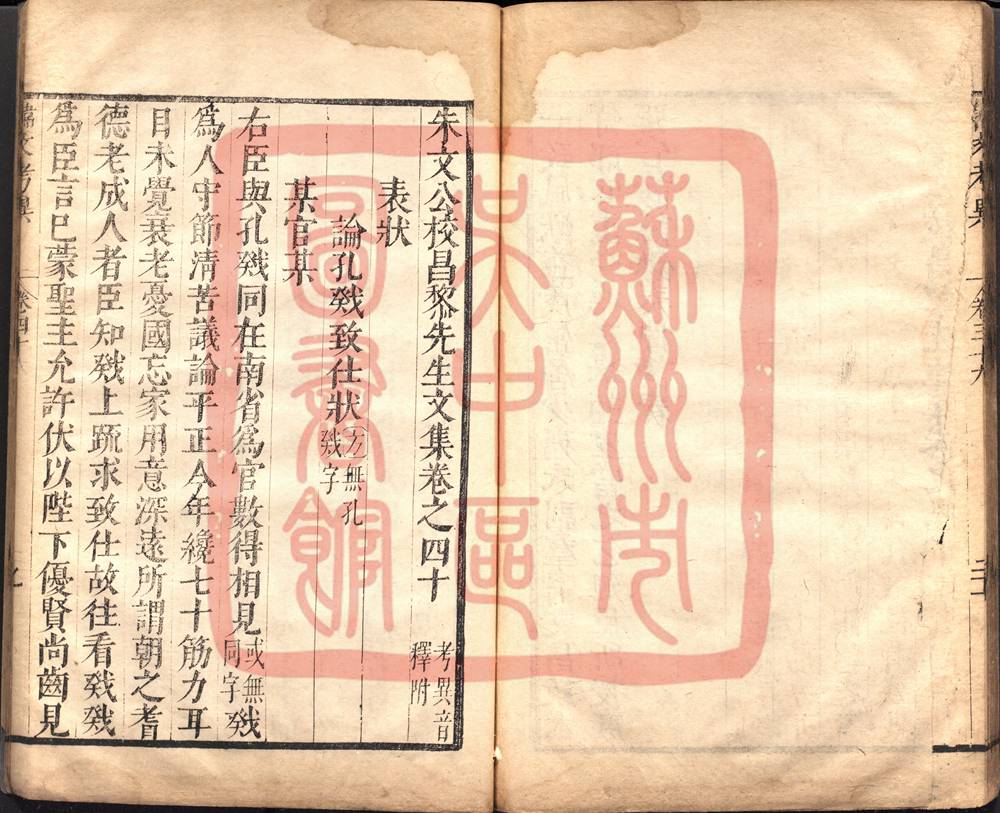 朱文公校昌黎先生文集卷之四十
考異音
釋附
表狀
論孔戣致仕狀
方無孔
戣字
某官某
右臣與孔戣同在南省爲官數得相見
或無
同字
戣
爲人守節清苦議論平正今年纔七十筋力耳
目未覺衰老憂國忘家用意深遠所謂朝之耆
德老成人者臣知戣上疏求致仕故往看戣戣
爲臣言已蒙聖主允許伏以陛下優賢尚齒見
韓文考異
卷四十
蘇州市
吳中區
圖書館